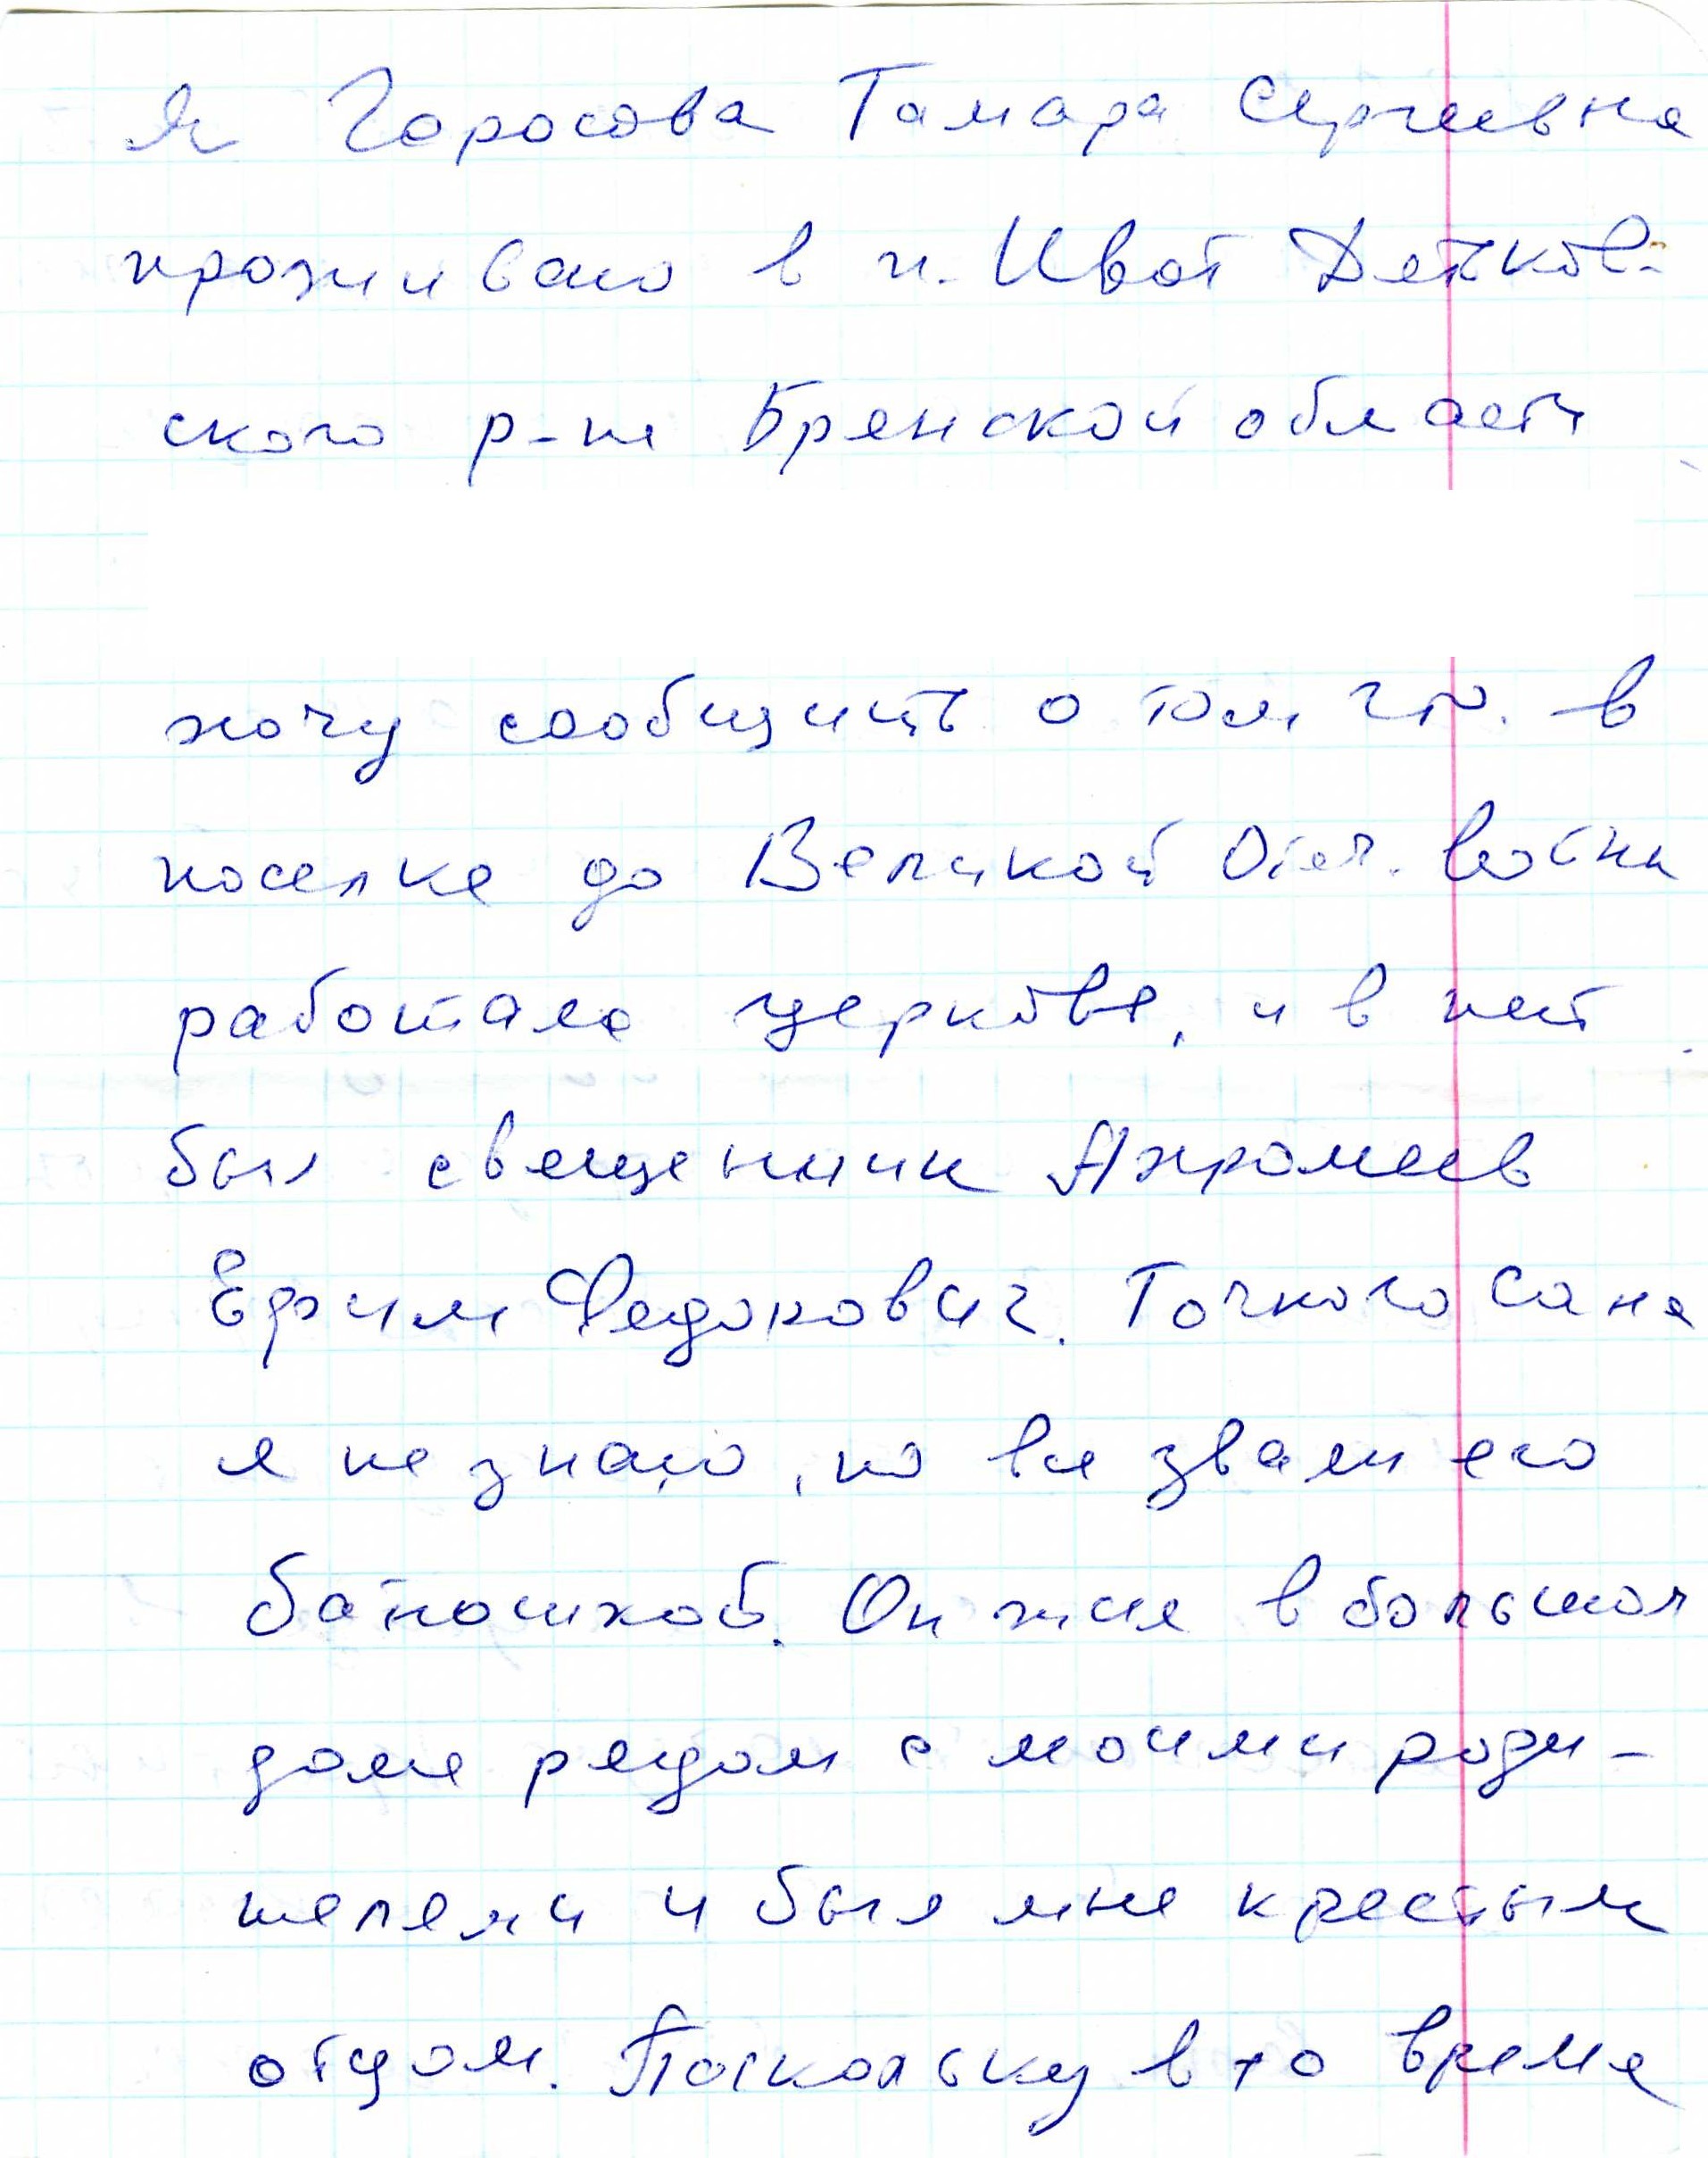 Я Горосова Тамара Сергеевна
проживаю в п. Ивот Дятьков-
ского р-на Брянской области
хочу сообщить о том что. в
поселке до Великой Отеч. войны
работала церковь, и в ней
был священник Ахромеев
Ефим Федорович. Точного сана
я не знаю, но все звали его
батюшкой. Он жил в большом
доме рядом с моими роди-
телями и был мне крестным
отцом. Поскольку в то время